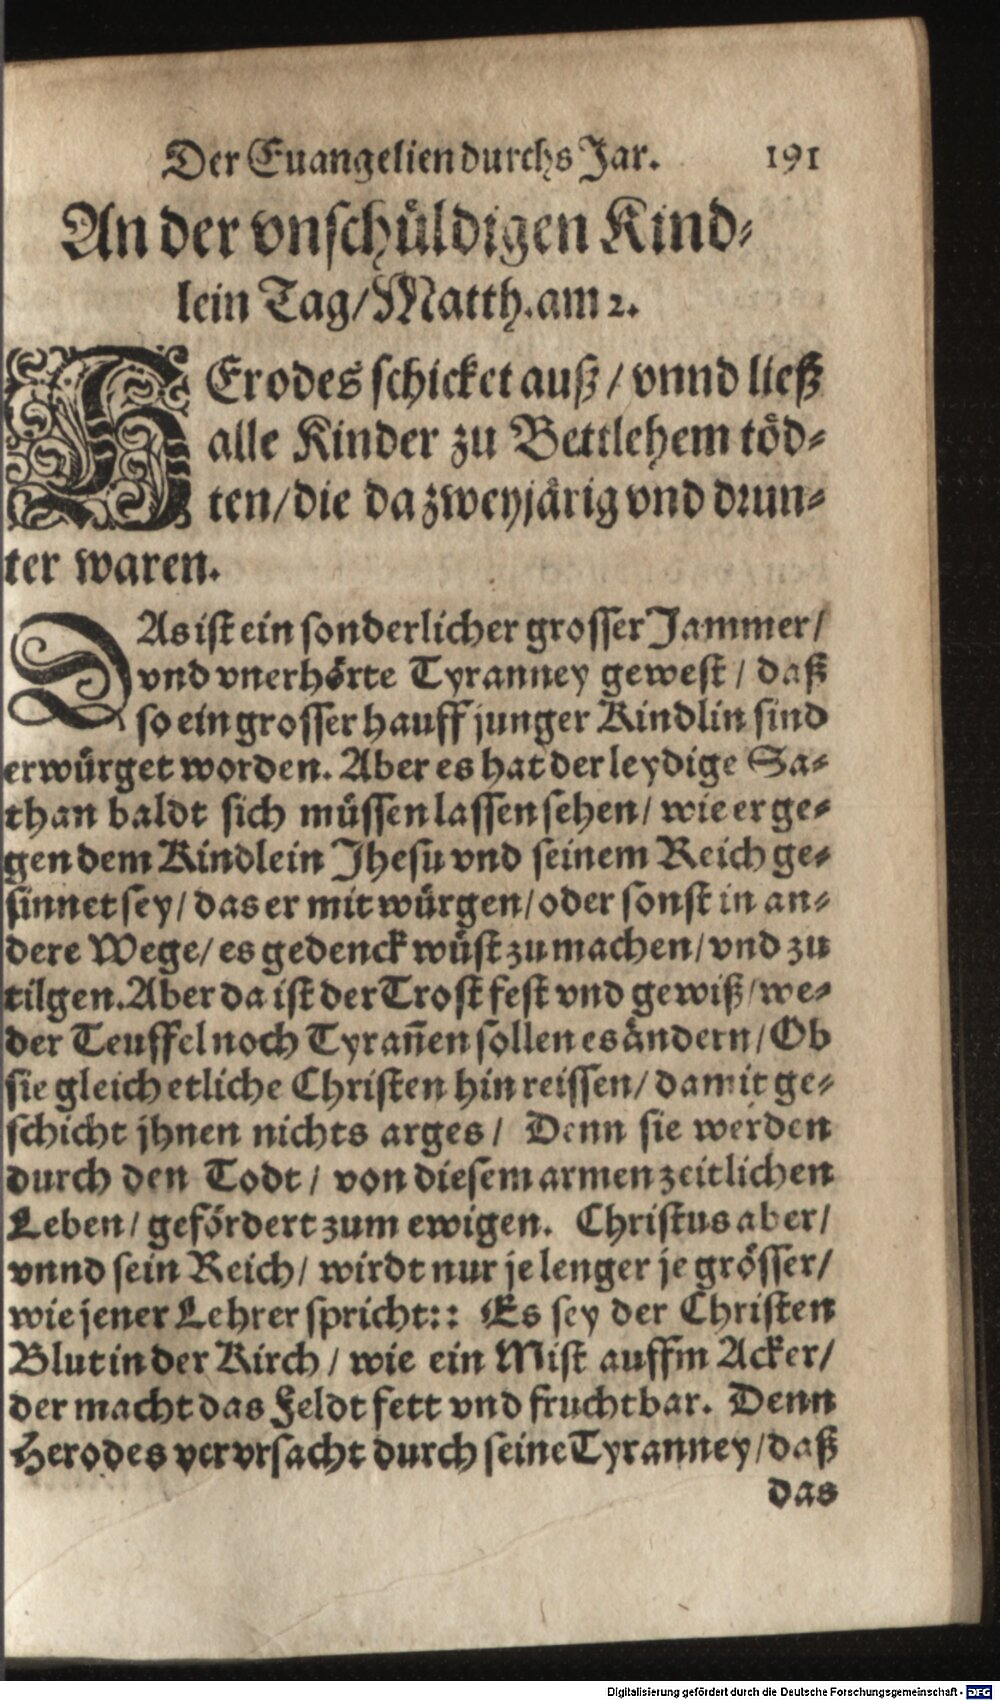 Der Euangelien durchs Jar. 191
An der vnschüldigen Kind⸗
lein Tag/Matth.am 2.
HErodes schicket auß / vnnd ließ
alle Kinder zu Bettlehem töd⸗
ten/die da zweyjärig vnd drun⸗
ter waren.
DAs ist ein sonderlicher grosser Jammer/
vnd vnerhörte Tyranney gewest / daß
so ein grosser hauff junger Kindlin sind
erwürget worden. Aber es hat der leydige Sa⸗
than baldt sich müssen lassen sehen/ wie er ge⸗
gen dem Kindlein Jhesu vnd seinem Reich ge⸗
sinnet sey/ das er mit würgen/oder sonst in an⸗
dere Wege/ es gedenck wüst zu machen/ vnd zu
tilgen. Aber da ist der Trost fest vnd gewiß/we⸗
der Teuffel noch Tyrañen sollen es ändern/ Ob
sie gleich etliche Christen hin reissen/ damit ge⸗
schicht jhnen nichts arges/ Denn sie werden
durch den Todt / von diesem armen zeitlichen
Leben/ gefördert zum ewigen. Christus aber/
vnnd sein Reich/ wirdt nur je lenger je grösser/
wie jener Lehrer spricht:: Es sey der Christen
Blut in der Kirch / wie ein Mist auffm Acker/
der macht das Feldt fett vnd fruchtbar. Denn
Herodes vervrsacht durch seine Tyranney/daß
das
Digitalisierung gefördert durch die Deutsche Forschungsgemeinschaft - DFG